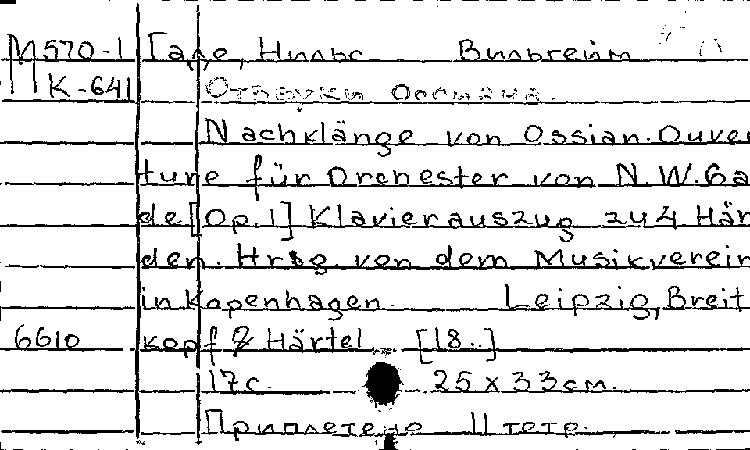 М570-1 Гаде, Нильс Вильгейм
К-641 Отзвуки Оссиана.
Nachklänge von Ossian. Ouver
ture für Orchester von N.W.Ga
de [Op.1] Klavierauszug zu 4 Här
den. Hrsg von dem Musikverein
in Kopenhagen. Leipzig, Breit
6610 kopf & Härtel [18..]
17с. 25 x 33 см.
Приплетено 11 тетр.